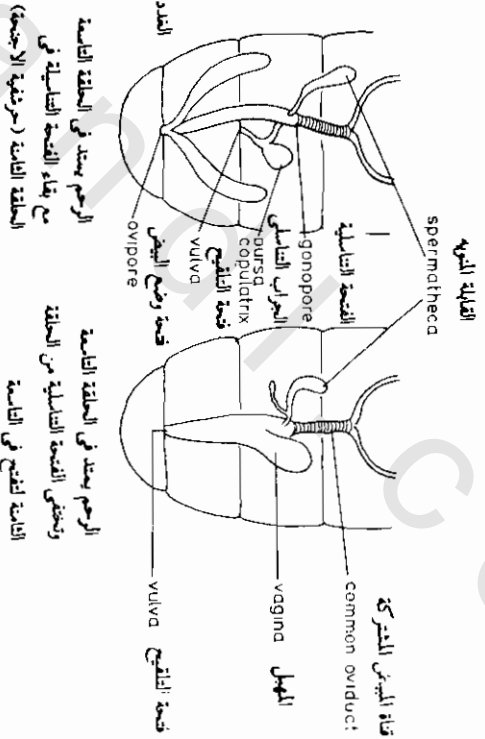 القابلة المنويه
spermatheca
الفتحة التناسلية
gonopore
الجراب التناسلى
bursa
copulatrix
فتحة التلقيح
vulva
فتحة وضع البيض
ovipore
الغدد
الرحم يمتد فى الحلقة التاسعة
مع بقاء الفتحة التناسيلة فى
الحلقة الثامنة (حرشفية الاجنحة)
قناة المبيض المشتركة
common oviduct
المهبل
vagina
فتحة التلقيح
vulva
الرحم يمتد فى الحلقة التاسعة
وتختفى الفتحة التناسلية من الحلقة
الثامنة لتفتح فى التاسعة